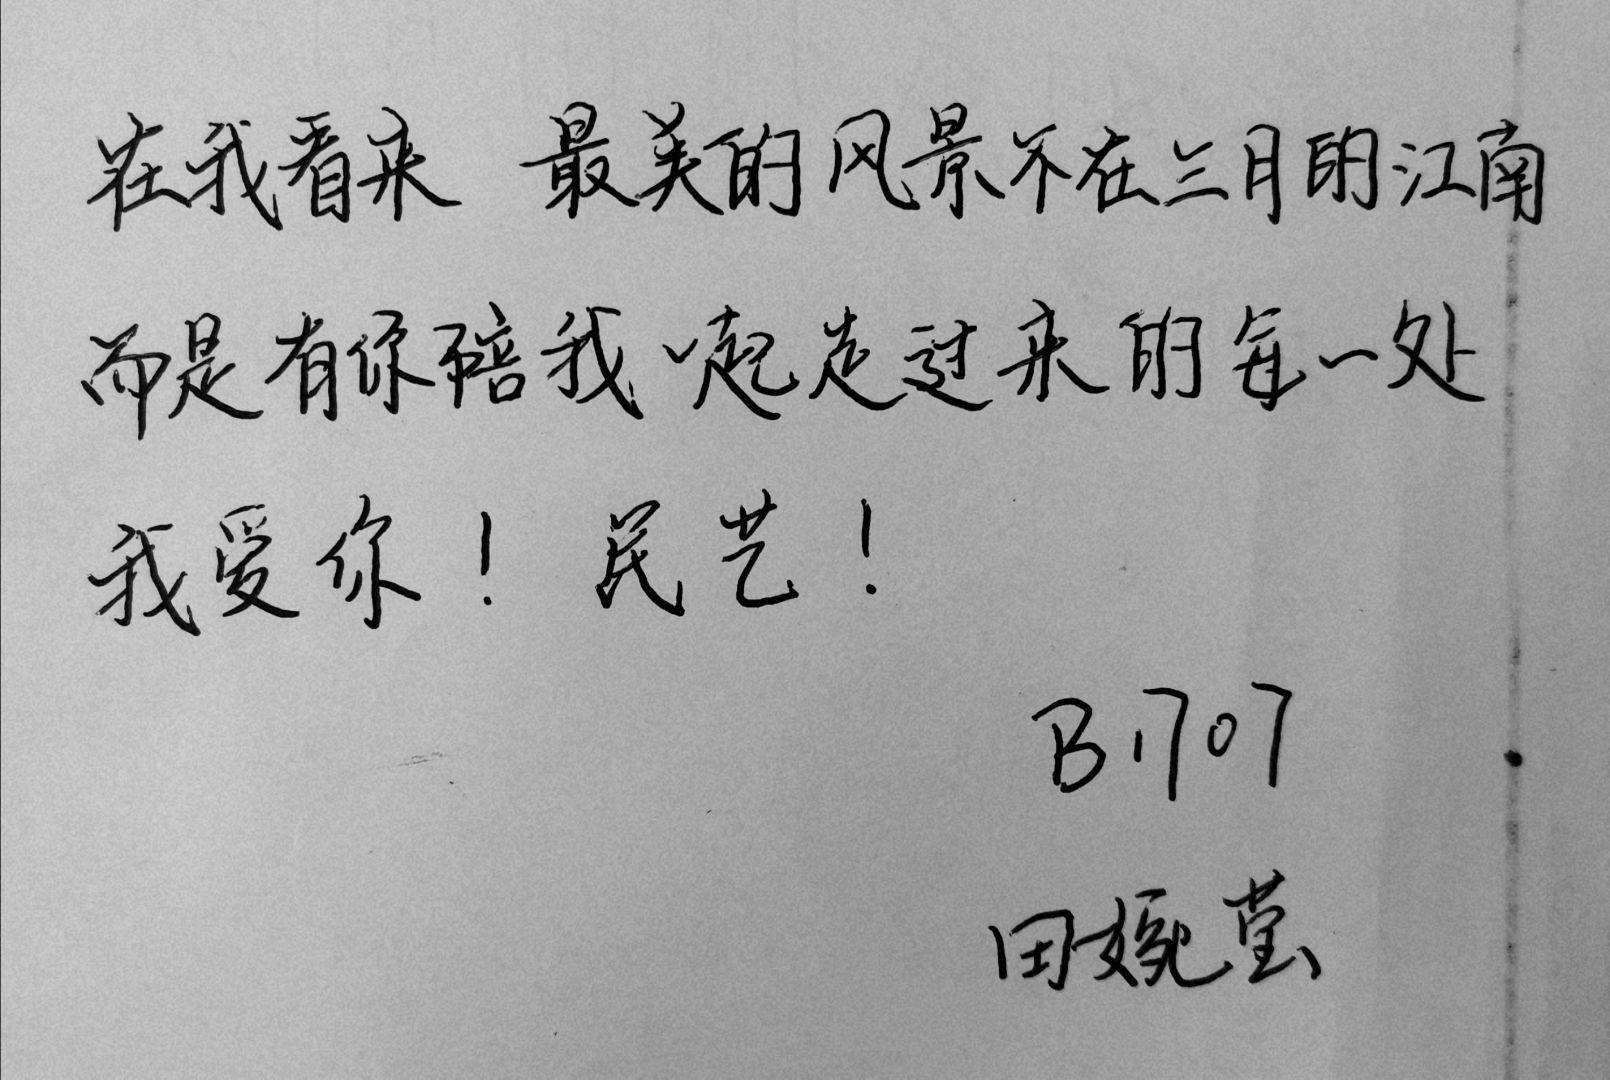 在我看来 最美的风景不在三月的江南
而是有你陪我一起走过来的每一处
我爱你！ 民艺！
B1707
田婉莹